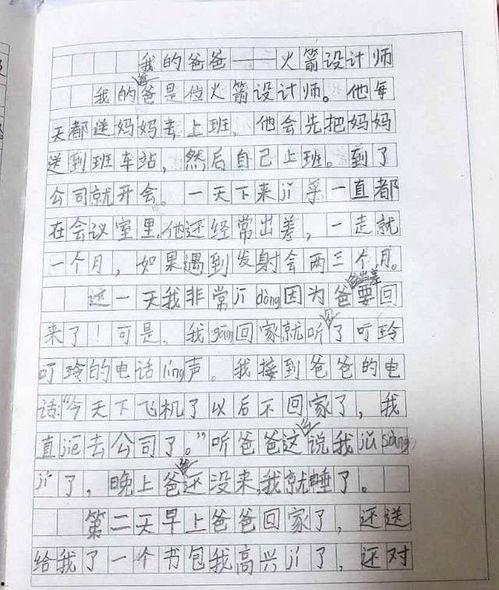 我的爸爸——火箭设计师
我的爸爸是位火箭设计师。他每
天都送妈妈去上班，他会先把妈妈
送到班车站，然后自己上班。到了
公司就开会。一天下来jǐ乎一直都
在会议室里。他还经常出差，一走就
一个月，如果遇到发射会两三个月。
这一天我非常jī dòng因为爸爸出差要回
来了！可是，我gāng回家就听到了叮玲
叮玲的电话líng声。我接到爸爸的电
话：“今天下飞机了以后不回家了，我
直jiē去公司了。”听爸爸这么说我jǔ sàng
jí了，晚上爸爸还没来，我就睡了。
第二天早上爸爸回家了，还送
给我了一个书包我高兴jí了，还对